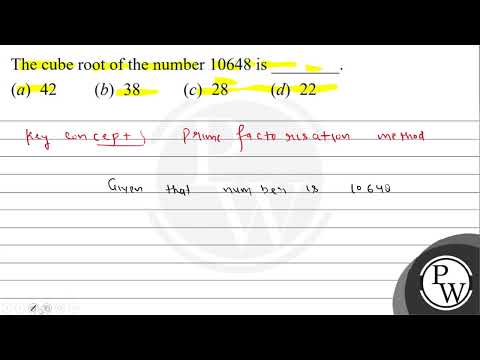 The cube root of the number 10648 is _________.
(a) 42 (b) 38 (c) 28 (d) 22
Key concept } Prime factorisation method
Given that number is 10648
PW
PW